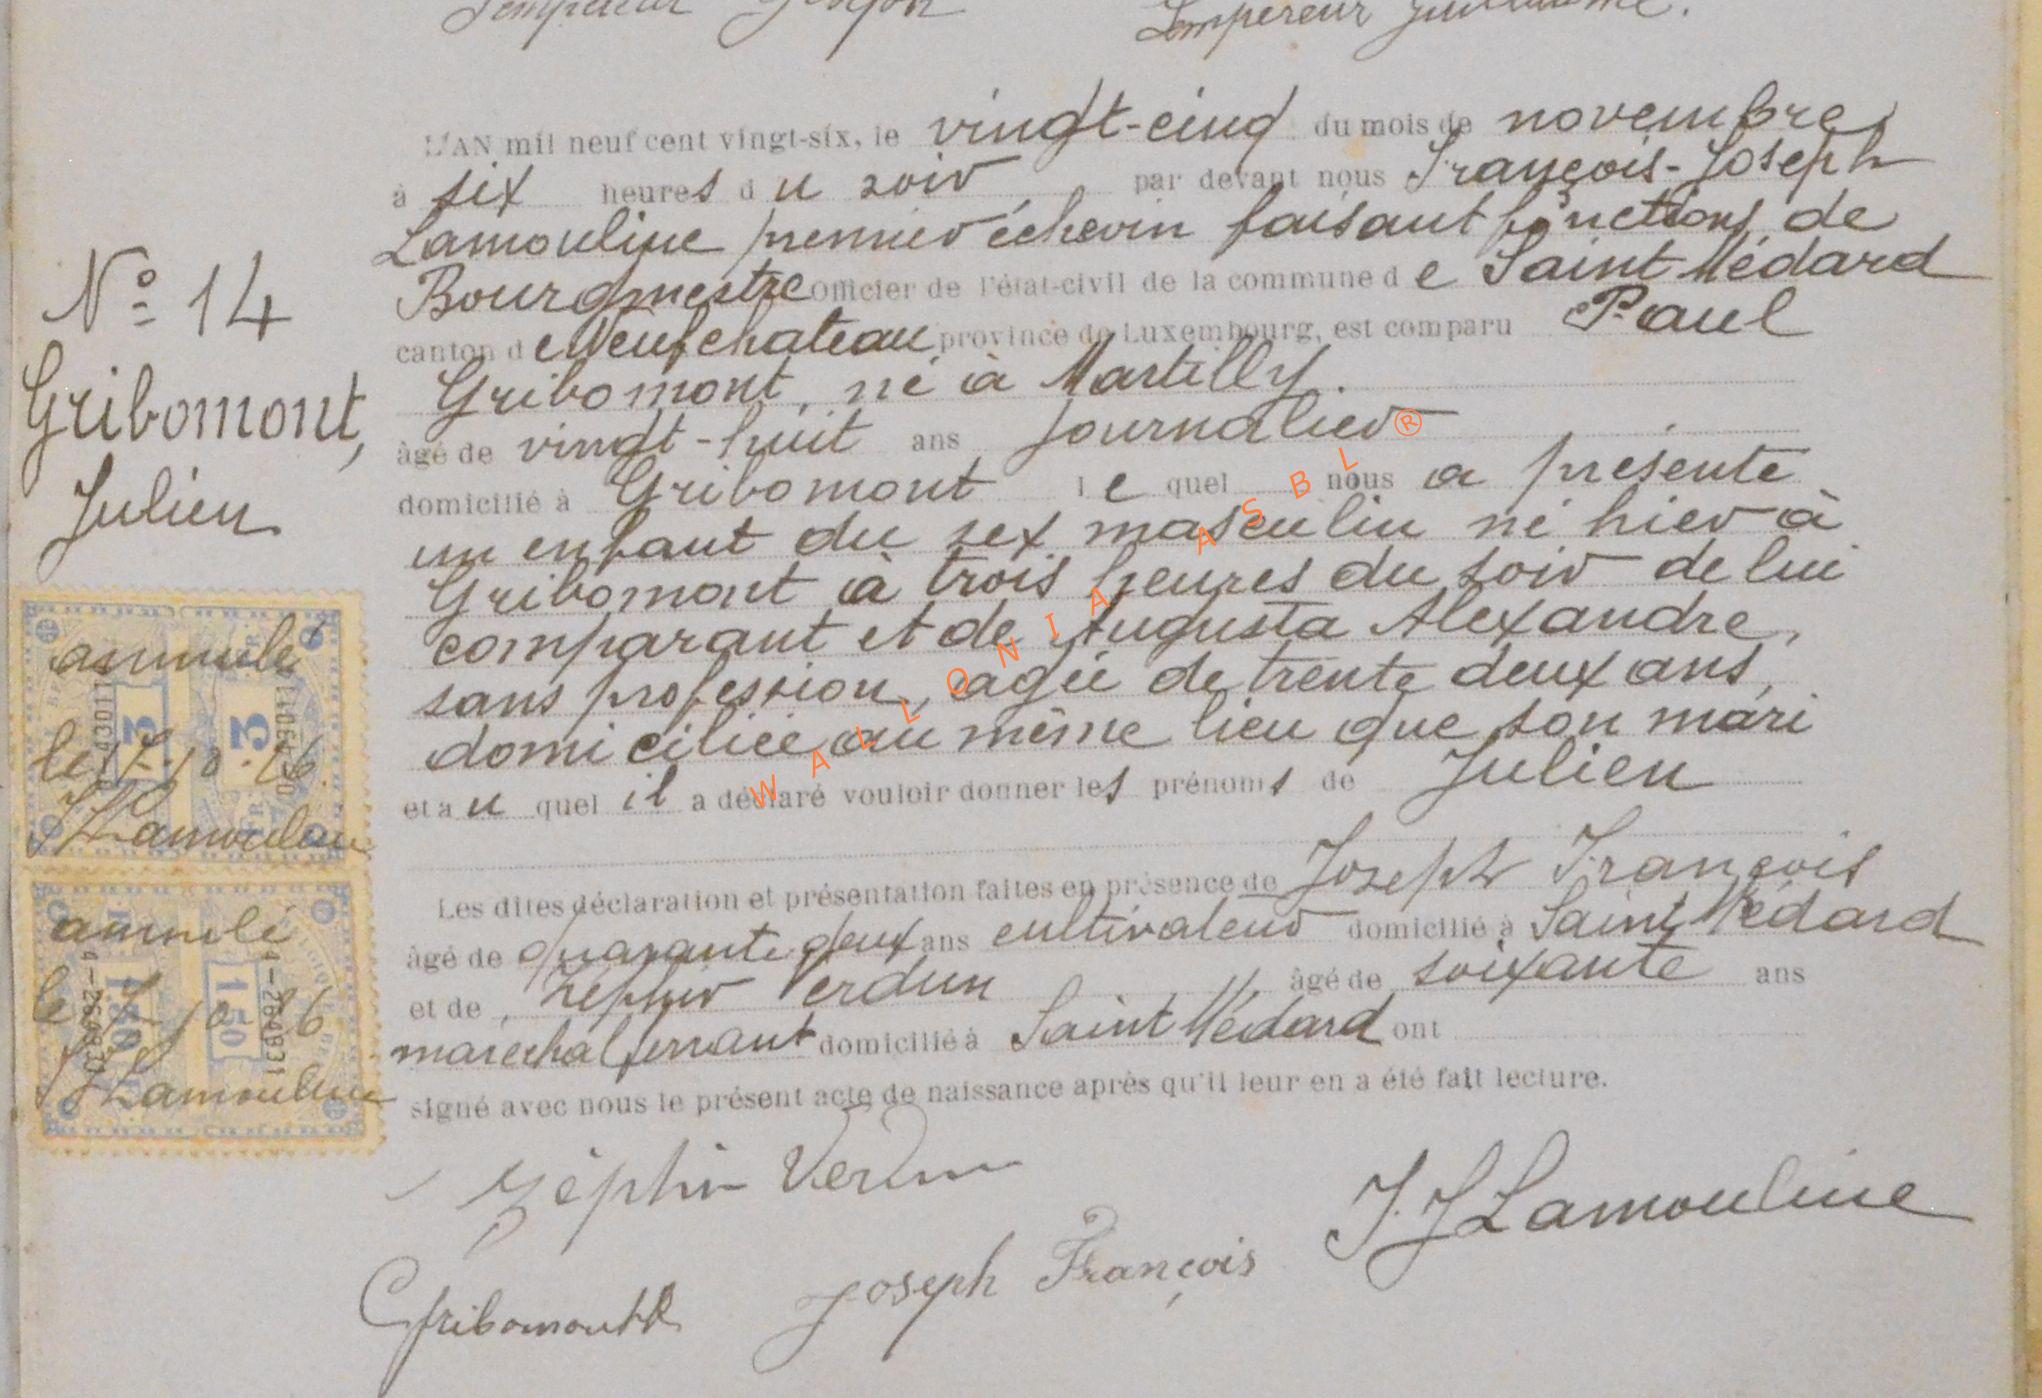 Lempereur Joseph Lempereur Guillaume.
L'AN mil neuf cent vingt-six, le vingt-cinq du mois de novembre
à six heures du soir, par devant nous François-Joseph
Lamouline premier échevin faisant fonctions de
Bourgmestre officier de l'état-civil de la commune de Saint Médard
canton de Neufchateau province de Luxembourg, est comparu Paul
Gribomont, né à Martilly.
âgé de vingt-huit ans journalier
domicilié à Gribomont lequel nous a présenté
un enfant du sex masculin né hier à
Gribomont à trois heures du soir de lui
comparant et de Augusta Alexandre,
sans profession, agée de trente deux ans,
domiciliée au même lieu que son mari
et au quel il a déclaré vouloir donner les prénoms de Julien
Les dites déclaration et présentation faites en présence de Joseph François
âgé de quarante deux ans cultivateur domicilié à Saint Médard
et de, Zéphir Verdun âgé de soixante ans
marechal ferrant domicilié à Saint Médard ont
signé avec nous le présent acte de naissance après qu'il leur en a été fait lecture.
Zéphir Verdun
J. J Lamouline
Gribomont Joseph François
N° 14
Gribomont,
Julien
annulé
3 3
Lamouline
annulé
1.50
Lamouline
WALLONIA ASBL ®